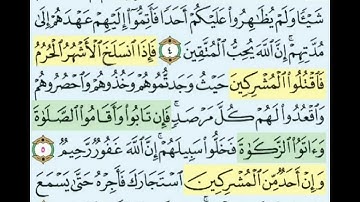 شَيْـًٔا وَلَمْ يُظَـٰهِرُوا۟ عَلَيْكُمْ أَحَدًا فَأَتِمُّوٓا۟ إِلَيْهِمْ عَهْدَهُمْ إِلَىٰ
مُدَّتِهِمْ ۚ إِنَّ ٱللَّهَ يُحِبُّ ٱلْمُتَّقِينَ ٤ فَإِذَا ٱنسَلَخَ ٱلْأَشْهُرُ ٱلْحُرُمُ
فَٱقْتُلُوا۟ ٱلْمُشْرِكِينَ حَيْثُ وَجَدتُّمُوهُمْ وَخُذُوهُمْ وَٱحْصُرُوهُمْ
وَٱقْعُدُوا۟ لَهُمْ كُلَّ مَرْصَدٍ ۚ فَإِن تَابُوا۟ وَأَقَامُوا۟ ٱلصَّلَوٰةَ
وَءَاتَوُا۟ ٱلزَّكَوٰةَ فَخَلُّوا۟ سَبِيلَهُمْ ۚ إِنَّ ٱللَّهَ غَفُورٌ رَّحِيمٌ ٥
وَإِنْ أَحَدٌ مِّنَ ٱلْمُشْرِكِينَ ٱسْتَجَارَكَ فَأَجِرْهُ حَتَّىٰ يَسْمَعَ